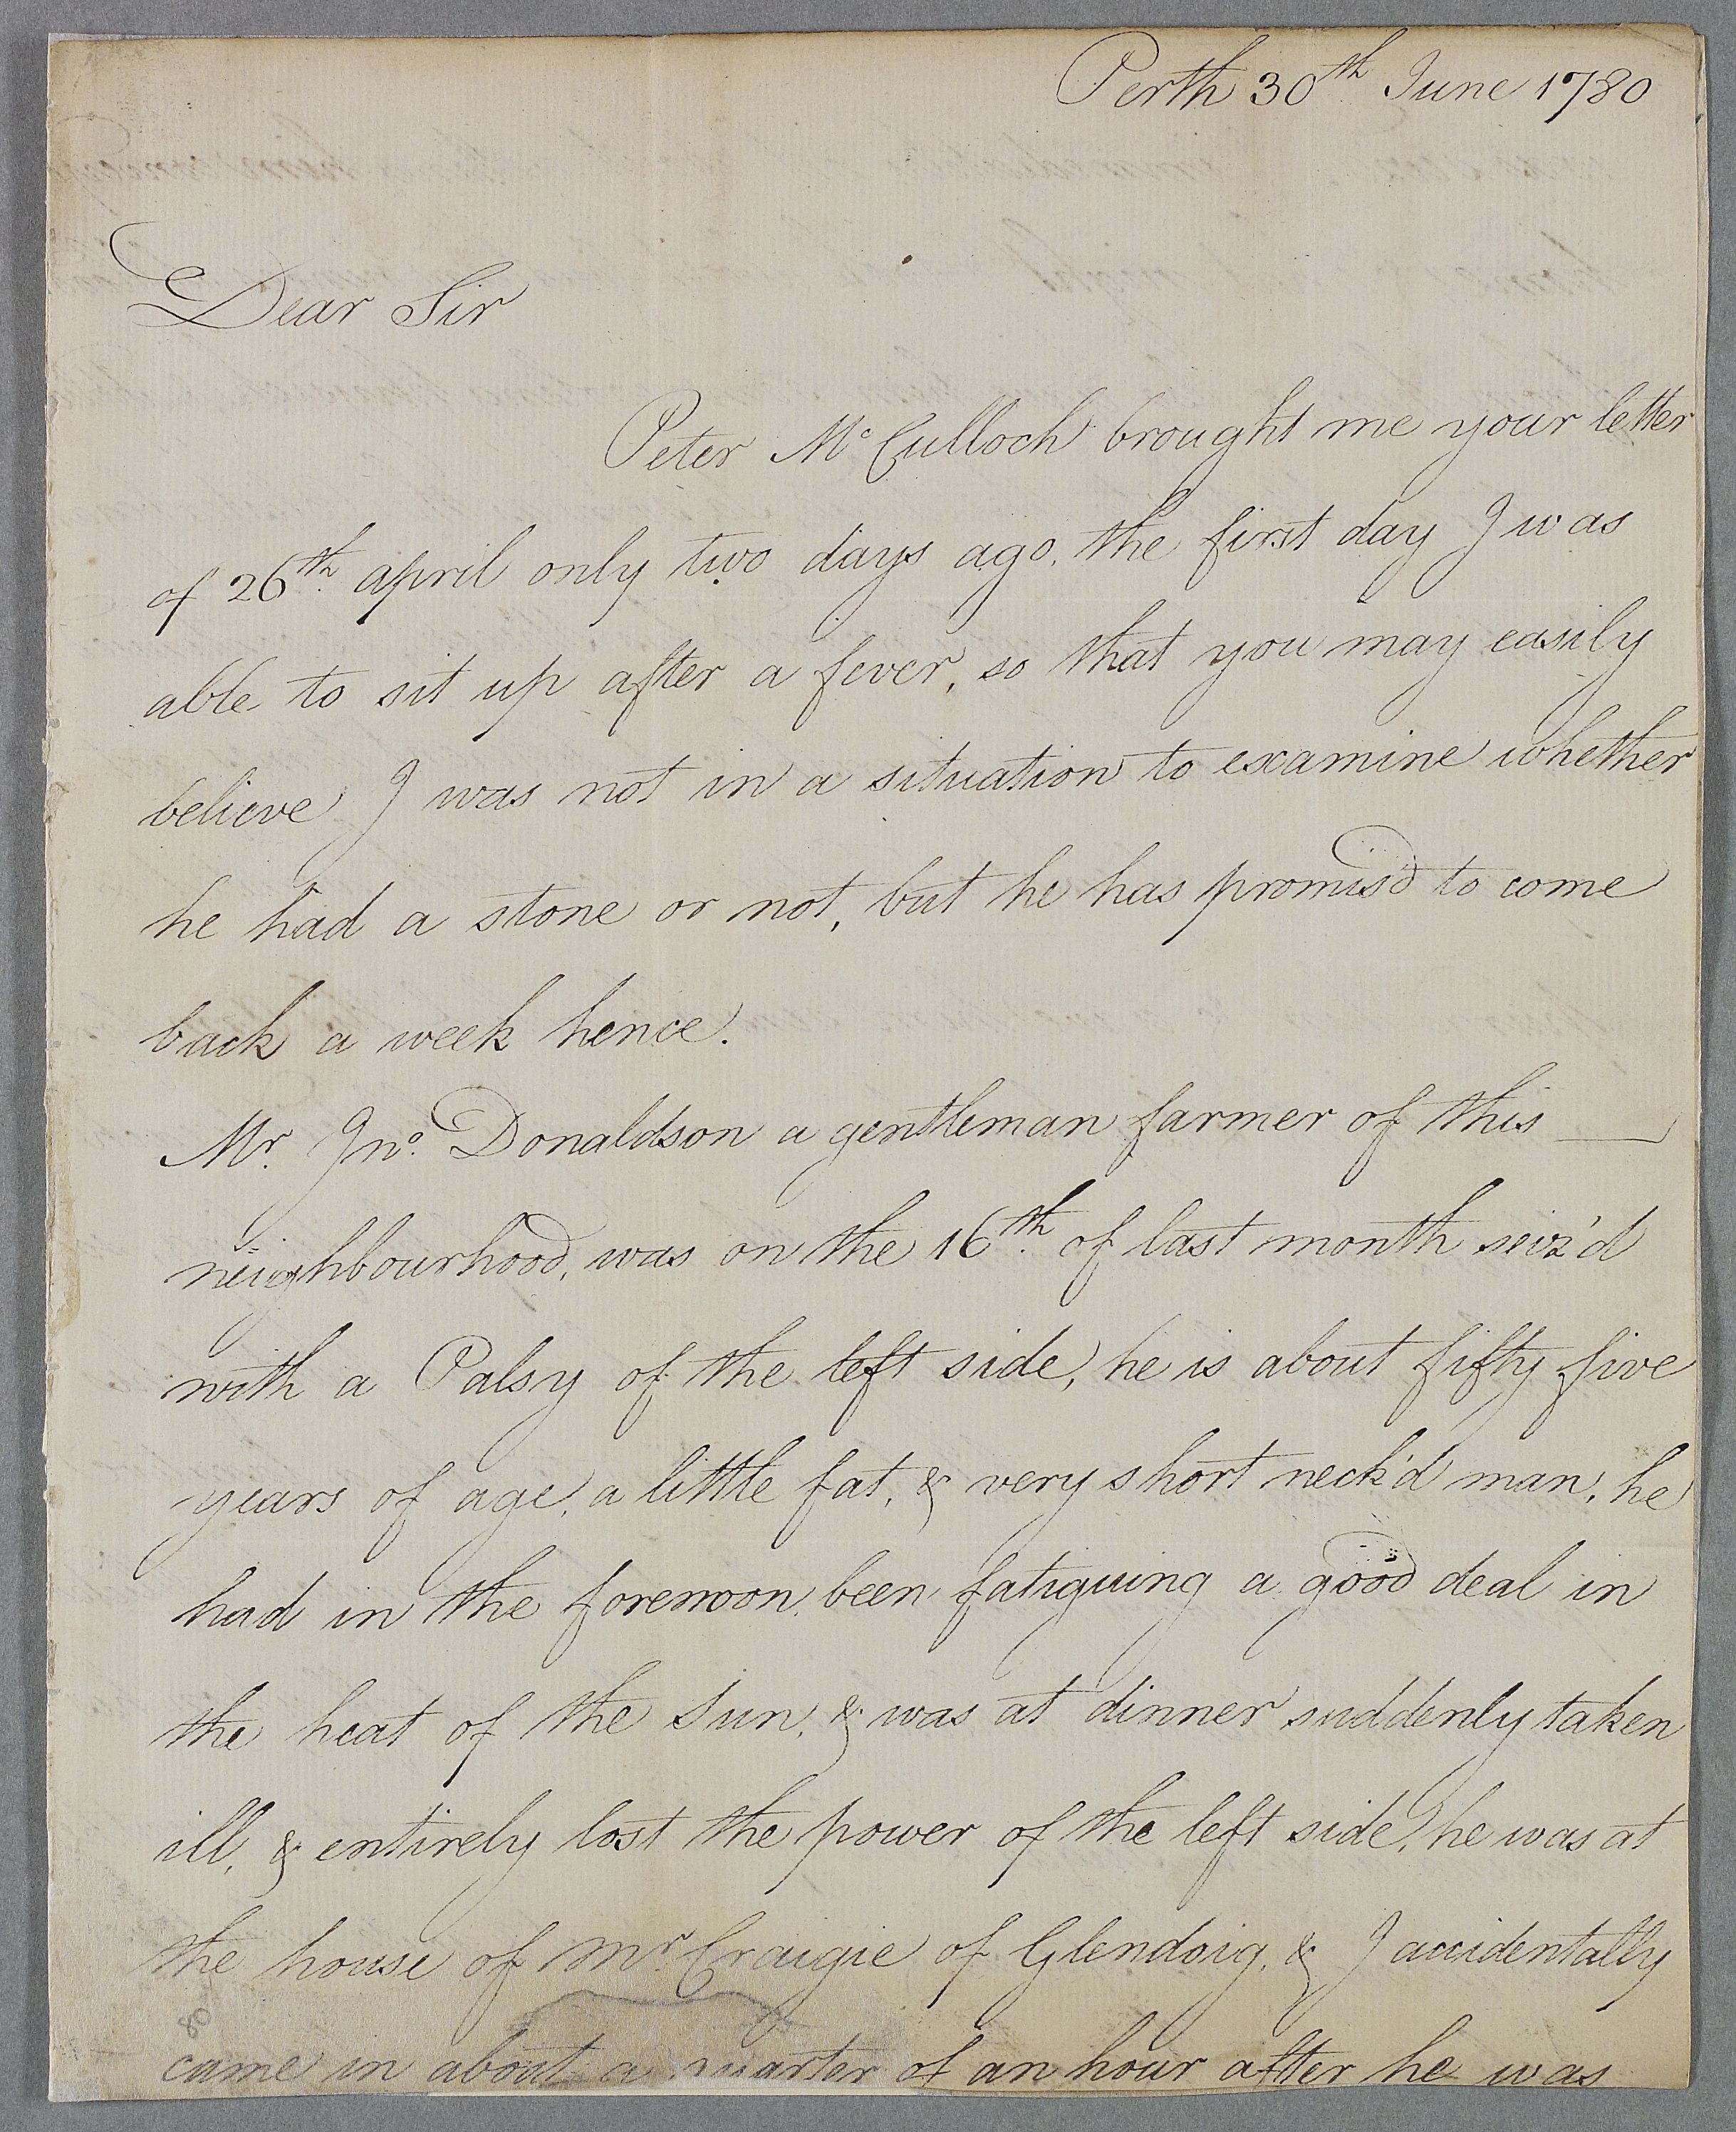 Perth 30th. June 1780
Dear Sir
Peter Mc Culloch brought me your letter
of 26th. april only two days ago, the first day I was
able to sit up after a fever, so that you may easily
believe I was not in a situation to examine whether
he had a stone or not, but he has promis'd to come
back a week hence.
Mr. Jno. Donaldson a gentleman farmer of this
neighbourhood, was on the 16th. of last month seiz'd
with a Palsy of the left side, he is about fifty five
years of age, a little fat, & very short neck'd man, he
had in the forenoon, been fatiguing a good deal in
the heat of the Sun, & was at dinner suddenly taken
ill, & entirely lost the power of the left side, he was at
the house of Mr. Craigie of Glendoig, & I accidentally
came in about a quarter of an hour after he was
80